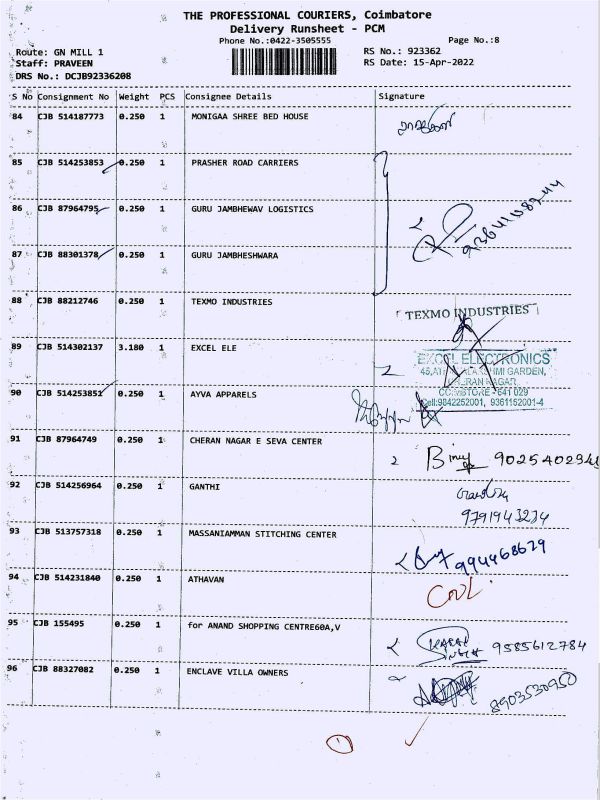 THE PROFESSIONAL COURIERS, Coimbatore
Delivery Runsheet - PCM
Phone No.:0422-3505555
Page No.:8
Route: GN MILL 1
RS No.: 923362
Staff: PRAVEEN
RS Date: 15-Apr-2022
DRS No.: DCJB92336208
S No Consignment No Weight PCS Consignee Details Signature
84 CJB 514187773 0.250 1 MONIGAA SHREE BED HOUSE
85 CJB 514253853 0.250 1 PRASHER ROAD CARRIERS
86 CJB 87964795 0.250 1 GURU JAMBHEWAV LOGISTICS
87 CJB 88301378 0.250 1 GURU JAMBHESHWARA
88 CJB 88212746 0.250 1 TEXMO INDUSTRIES
TEXMO INDUSTRIES
89 CJB 514302137 3.180 1 EXCEL ELE
EXCEL ELECTRONICS
GARDEN,
NAGAR
COIMBATORE - 641 029
Cell:9842252001, 9361152001-4
90 CJB 514253851 0.250 1 AYVA APPARELS
91 CJB 87964749 0.250 1 CHERAN NAGAR E SEVA CENTER
92 CJB 514256964 0.250 1 GANTHI
9791943234
93 CJB 513757318 0.250 1 MASSANIAMMAN STITCHING CENTER
994468629
94 CJB 514231840 0.250 1 ATHAVAN
95 CJB 155495 0.250 1 for ANAND SHOPPING CENTRE60A,V
9585612784
96 CJB 88327082 0.250 1 ENCLAVE VILLA OWNERS
8903530950
1